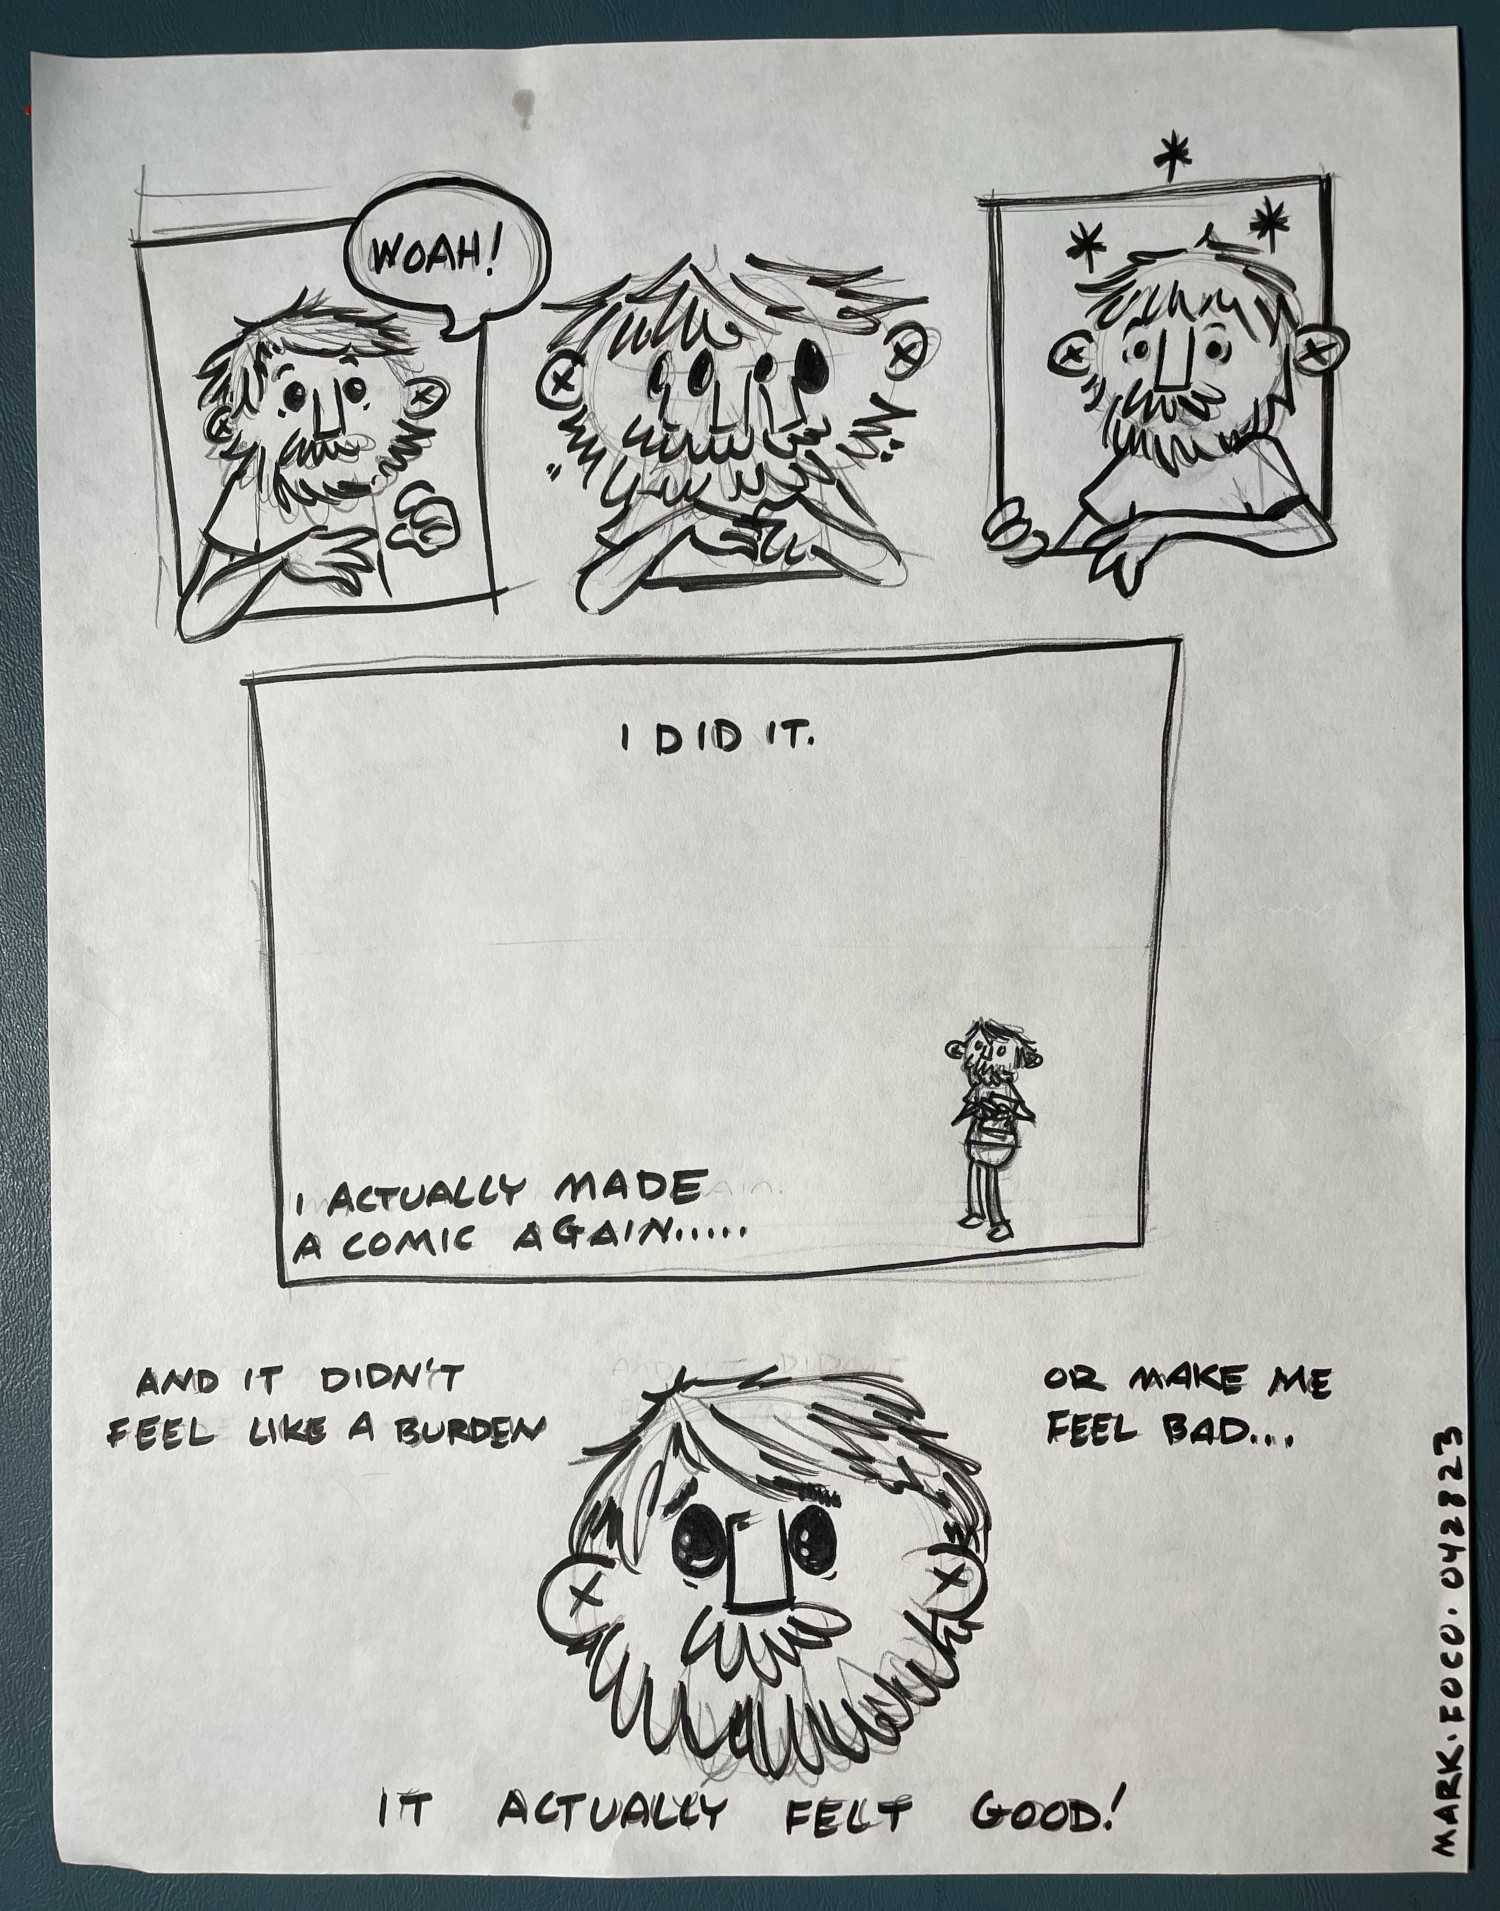 WOAH!
I DID IT.
I ACTUALLY MADE
A COMIC AGAIN.....
AND IT DIDN'T
FEEL LIKE A BURDEN
OR MAKE ME
FEEL BAD...
IT ACTUALLY FELT GOOD!
MARK.FOCO.042823